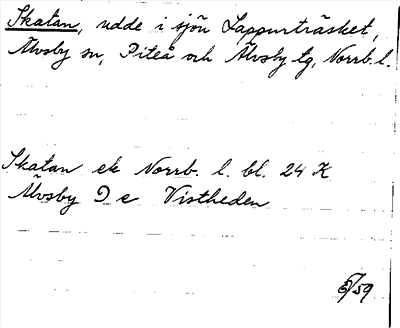 Skatan, udde i sjön Lappurträsket,
Älvsby sn, Piteå och Älvsby tg, Norrb. l.
Skatan ek Norrb. l. bl. 24 K
Älvsby D e Vistheden
/59